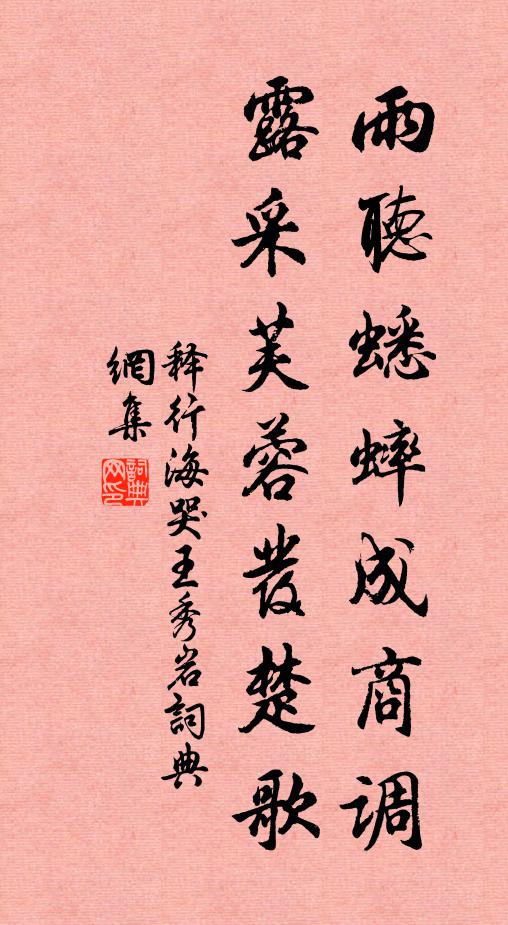 雨聽蟋蟀成商调
露采芙蓉發楚歌
释行海哭王秀岩詞典
網集
詞典网印